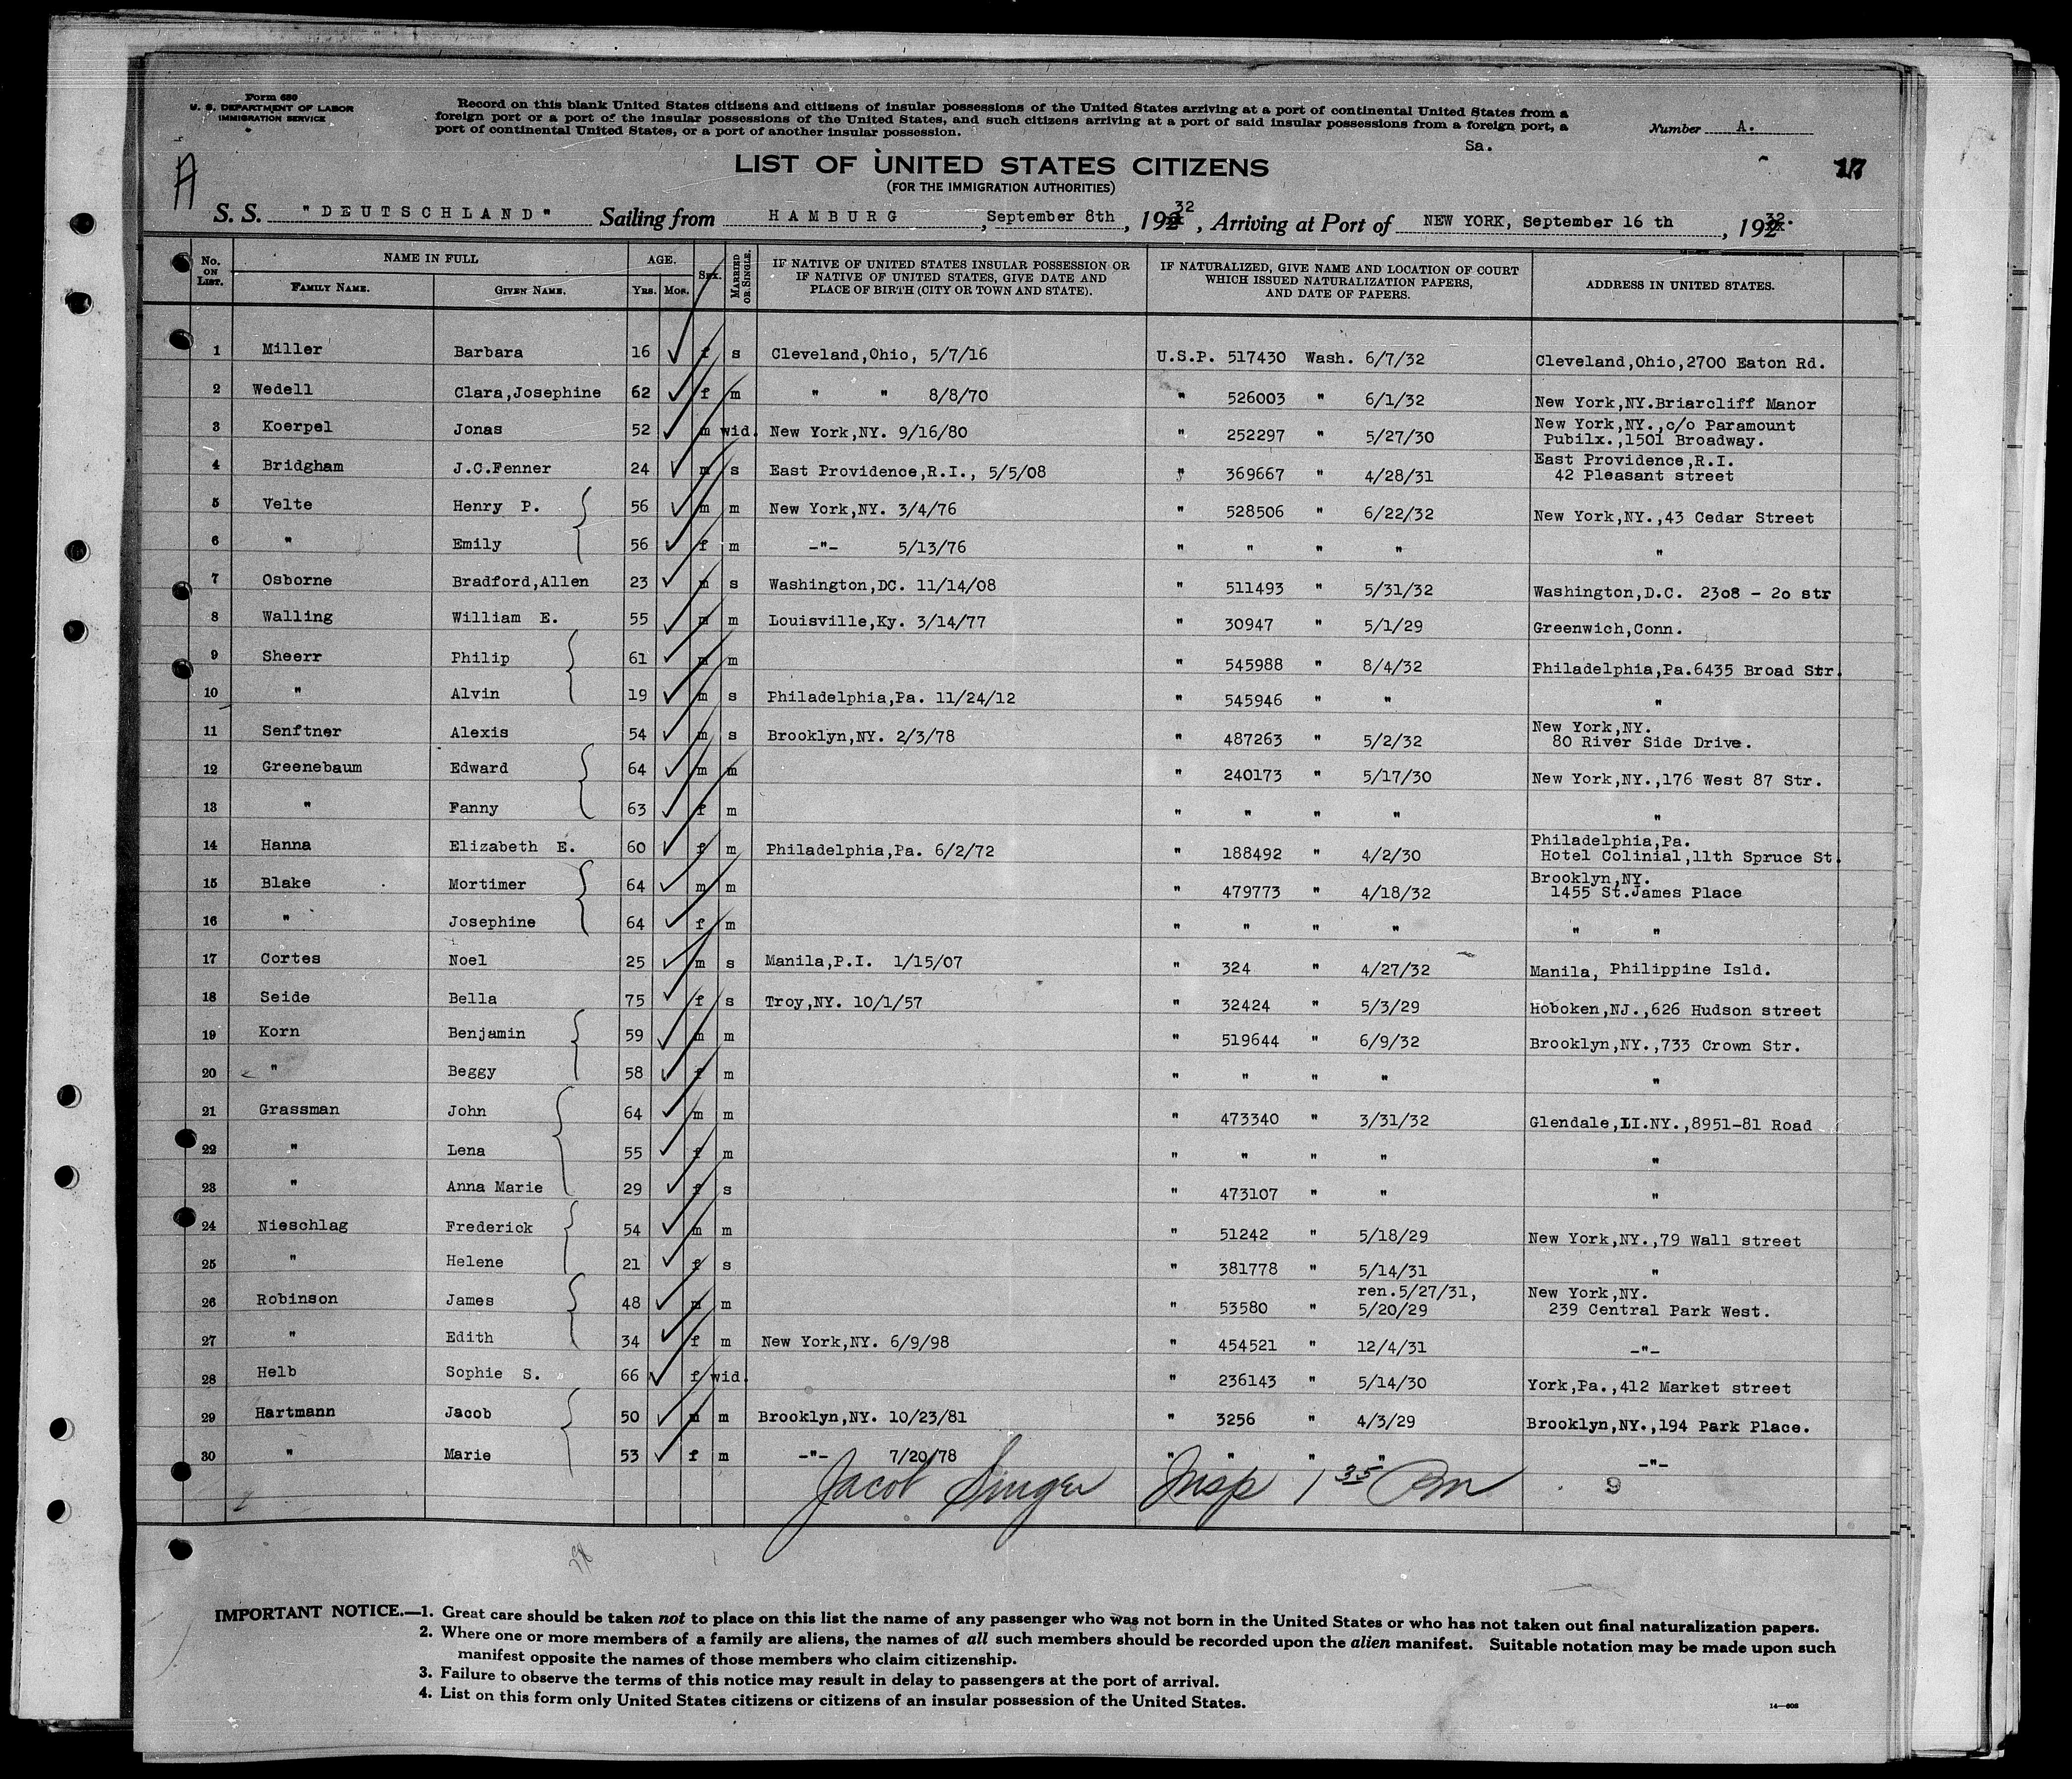 Form 630
U. S. DEPARTMENT OF LABOR
IMMIGRATION SERVICE
Record on this blank United States citizens and citizens of insular possessions of the United States arriving at a port of continental United States from a
foreign port or a port of the insular possessions of the United States, and such citizens arriving at a port of said insular possessions from a foreign port, a
port of continental United States, or a port of another insular possession.
Number A.
Sa.
A
LIST OF UNITED STATES CITIZENS
(FOR THE IMMIGRATION AUTHORITIES)
17
S. S. "DEUTSCHLAND" Sailing from HAMBURG, September 8th, 192 32, Arriving at Port of NEW YORK, September 16 th, 192 32.
No. ON LIST. NAME IN FULL FAMILY NAME. GIVEN NAME. AGE. Yrs. Mos. Sex. MARRIED OR SINGLE. IF NATIVE OF UNITED STATES INSULAR POSSESSION OR IF NATIVE OF UNITED STATES, GIVE DATE AND PLACE OF BIRTH (CITY OR TOWN AND STATE). IF NATURALIZED, GIVE NAME AND LOCATION OF COURT WHICH ISSUED NATURALIZATION PAPERS, AND DATE OF PAPERS. ADDRESS IN UNITED STATES.
1 Miller Barbara 16 f s Cleveland,Ohio, 5/7/16 U.S.P. 517430 Wash. 6/7/32 Cleveland,Ohio,2700 Eaton Rd.
2 Wedell Clara,Josephine 62 f m " " 8/8/70 " 526003 " 6/1/32 New York,NY.Briarcliff Manor
3 Koerpel Jonas 52 m wid. New York,NY. 9/16/80 " 252297 " 5/27/30 New York,NY.,c/o Paramount
Pubilx.,1501 Broadway.
4 Bridgham J.C.Fenner 24 m s East Providence,R.I., 5/5/08 " 369667 " 4/28/31 East Providence,R.I.
42 Pleasant street
5 Velte Henry P. 56 m m New York,NY. 3/4/76 " 528506 " 6/22/32 New York,NY.,43 Cedar Street
6 " Emily 56 f m -"- 5/13/76 " " " " "
7 Osborne Bradford,Allen 23 m s Washington,DC. 11/14/08 " 511493 " 5/31/32 Washington,D.C. 2308 - 20 str
8 Walling William E. 55 m m Louisville,Ky. 3/14/77 " 30947 " 5/1/29 Greenwich,Conn.
9 Sheerr Philip 61 m m " 545988 " 8/4/32 Philadelphia,Pa.6435 Broad Str.
10 " Alvin 19 m s Philadelphia,Pa. 11/24/12 " 545946 " " "
11 Senftner Alexis 54 m s Brooklyn,NY. 2/3/78 " 487263 " 5/2/32 New York,NY.
80 River Side Drive.
12 Greenebaum Edward 64 m m " 240173 " 5/17/30 New York,NY.,176 West 87 Str.
13 " Fanny 63 f m " " " " "
14 Hanna Elizabeth E. 60 f m Philadelphia,Pa. 6/2/72 " 188492 " 4/2/30 Philadelphia,Pa.
Hotel Colinial,11th Spruce St.
15 Blake Mortimer 64 m m " 479773 " 4/18/32 Brooklyn,NY.
1455 St.James Place
16 " Josephine 64 f m " " " " " "
17 Cortes Noel 25 m s Manila,P.I. 1/15/07 " 324 " 4/27/32 Manila, Philippine Isld.
18 Seide Bella 75 f s Troy,NY. 10/1/57 " 32424 " 5/3/29 Hoboken,NJ.,626 Hudson street
19 Korn Benjamin 59 m m " 519644 " 6/9/32 Brooklyn,NY.,733 Crown Str.
20 " Beggy 58 f m " " " " "
21 Grassman John 64 m m " 473340 " 3/31/32 Glendale,LI.NY.,8951-81 Road
22 " Lena 55 f m " " " " "
23 " Anna Marie 29 f s " 473107 " " "
24 Nieschlag Frederick 54 m m " 51242 " 5/18/29 New York,NY.,79 Wall street
25 " Helene 21 f s " 381778 " 5/14/31 "
26 Robinson James 48 m m " 53580 " ren.5/27/31, 5/20/29 New York,NY.
239 Central Park West.
27 " Edith 34 f m New York,NY. 6/9/98 " 454521 " 12/4/31 -"-
28 Helb Sophie S. 66 f wid. " 236143 " 5/14/30 York,Pa.,412 Market street
29 Hartmann Jacob 50 m m Brooklyn,NY. 10/23/81 " 3256 " 4/3/29 Brooklyn,NY.,194 Park Place.
30 " Marie 53 f m -"- 7/20/78 " " " " -"-
Jacob Singer Insp 1 35 Pm 9
IMPORTANT NOTICE.—1. Great care should be taken not to place on this list the name of any passenger who was not born in the United States or who has not taken out final naturalization papers.
2. Where one or more members of a family are aliens, the names of all such members should be recorded upon the alien manifest. Suitable notation may be made upon such
manifest opposite the names of those members who claim citizenship.
3. Failure to observe the terms of this notice may result in delay to passengers at the port of arrival.
4. List on this form only United States citizens or citizens of an insular possession of the United States.
14—608